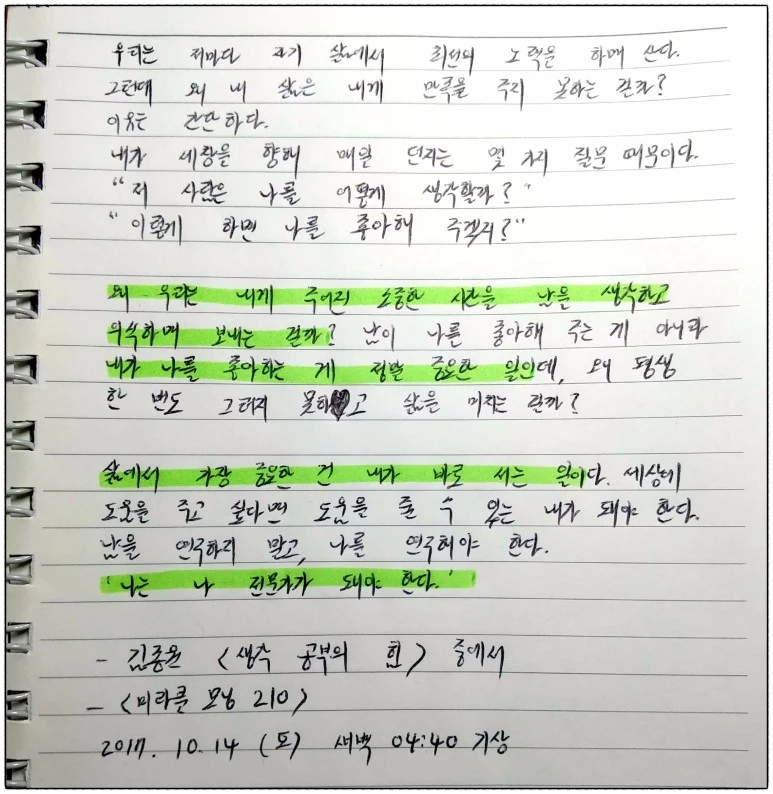 우리는 저마다 자기 삶에서 최선의 노력을 하며 산다.
그런데 왜 내 삶은 내게 만족을 주지 못하는 걸까?
이유는 간단하다.
내가 세상을 향해 매일 던지는 몇 가지 질문 때문이다.
"저 사람은 나를 어떻게 생각할까?"
"어떻게 하면 나를 좋아해 주겠지?"
왜 우리는 내게 주어진 소중한 시간을 남을 생각하고
의식하며 보내는 걸까? 남이 나를 좋아해 주는 게 아니라
내가 나를 좋아하는 게 정말 중요한 일인데, 왜 평생
한 번도 그러지 못하고 삶을 마치는 걸까?
삶에서 가장 중요한 건 내가 바로 서는 일이다. 세상에
도움을 주고 싶다면 도움을 줄 수 있는 내가 돼야 한다.
남을 연구하지 말고, 나를 연구해야 한다.
'나는 나 전문가가 돼야 한다.'
- 김종원 <생각 공부의 힘> 중에서
- <미라클 모닝 210>
2017. 10. 14 (토) 새벽 04:40 기상